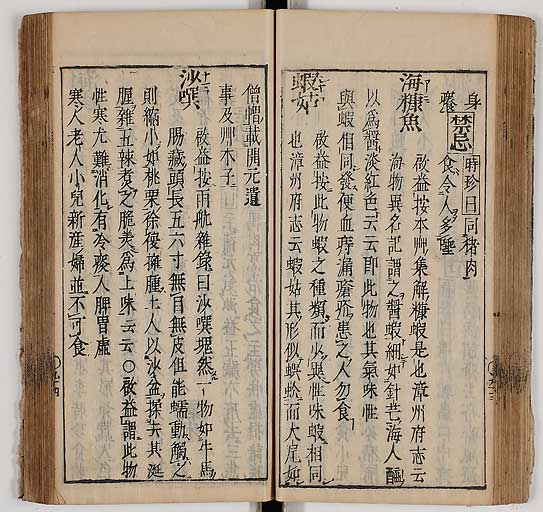 身
癢
禁忌
時珍曰同猪肉
食令人多唾
海糠魚
啟益按本州集解糠蝦是也漳州府志云
海物異名記謂之醬蝦細如針芒海人醢
以為醬淡紅色云云即此物也其氣味性
與蝦相同發便血痔漏瘡疥患之人勿食
蝦姑
啟益按此物蝦之種類而必異性味蝦相同
也漳州府志云蝦姑其形似蜈蚣而大尾如
僧帽載開元遺
事及艸木子
沙噀
啟益按雨航雜錄曰沙噀塊然一物如牛馬
腸藏頭長五六寸無目無皮但能蠕動觸之
則縮小如桃栗徐復擁腫土人以沙盆揉去其涎
腥雜五辣煮之脆美為上味云云〇啟益謂此物
性寒尤難消化有冷痰人脾胃虛
寒人老人小兒新産婦並不可食